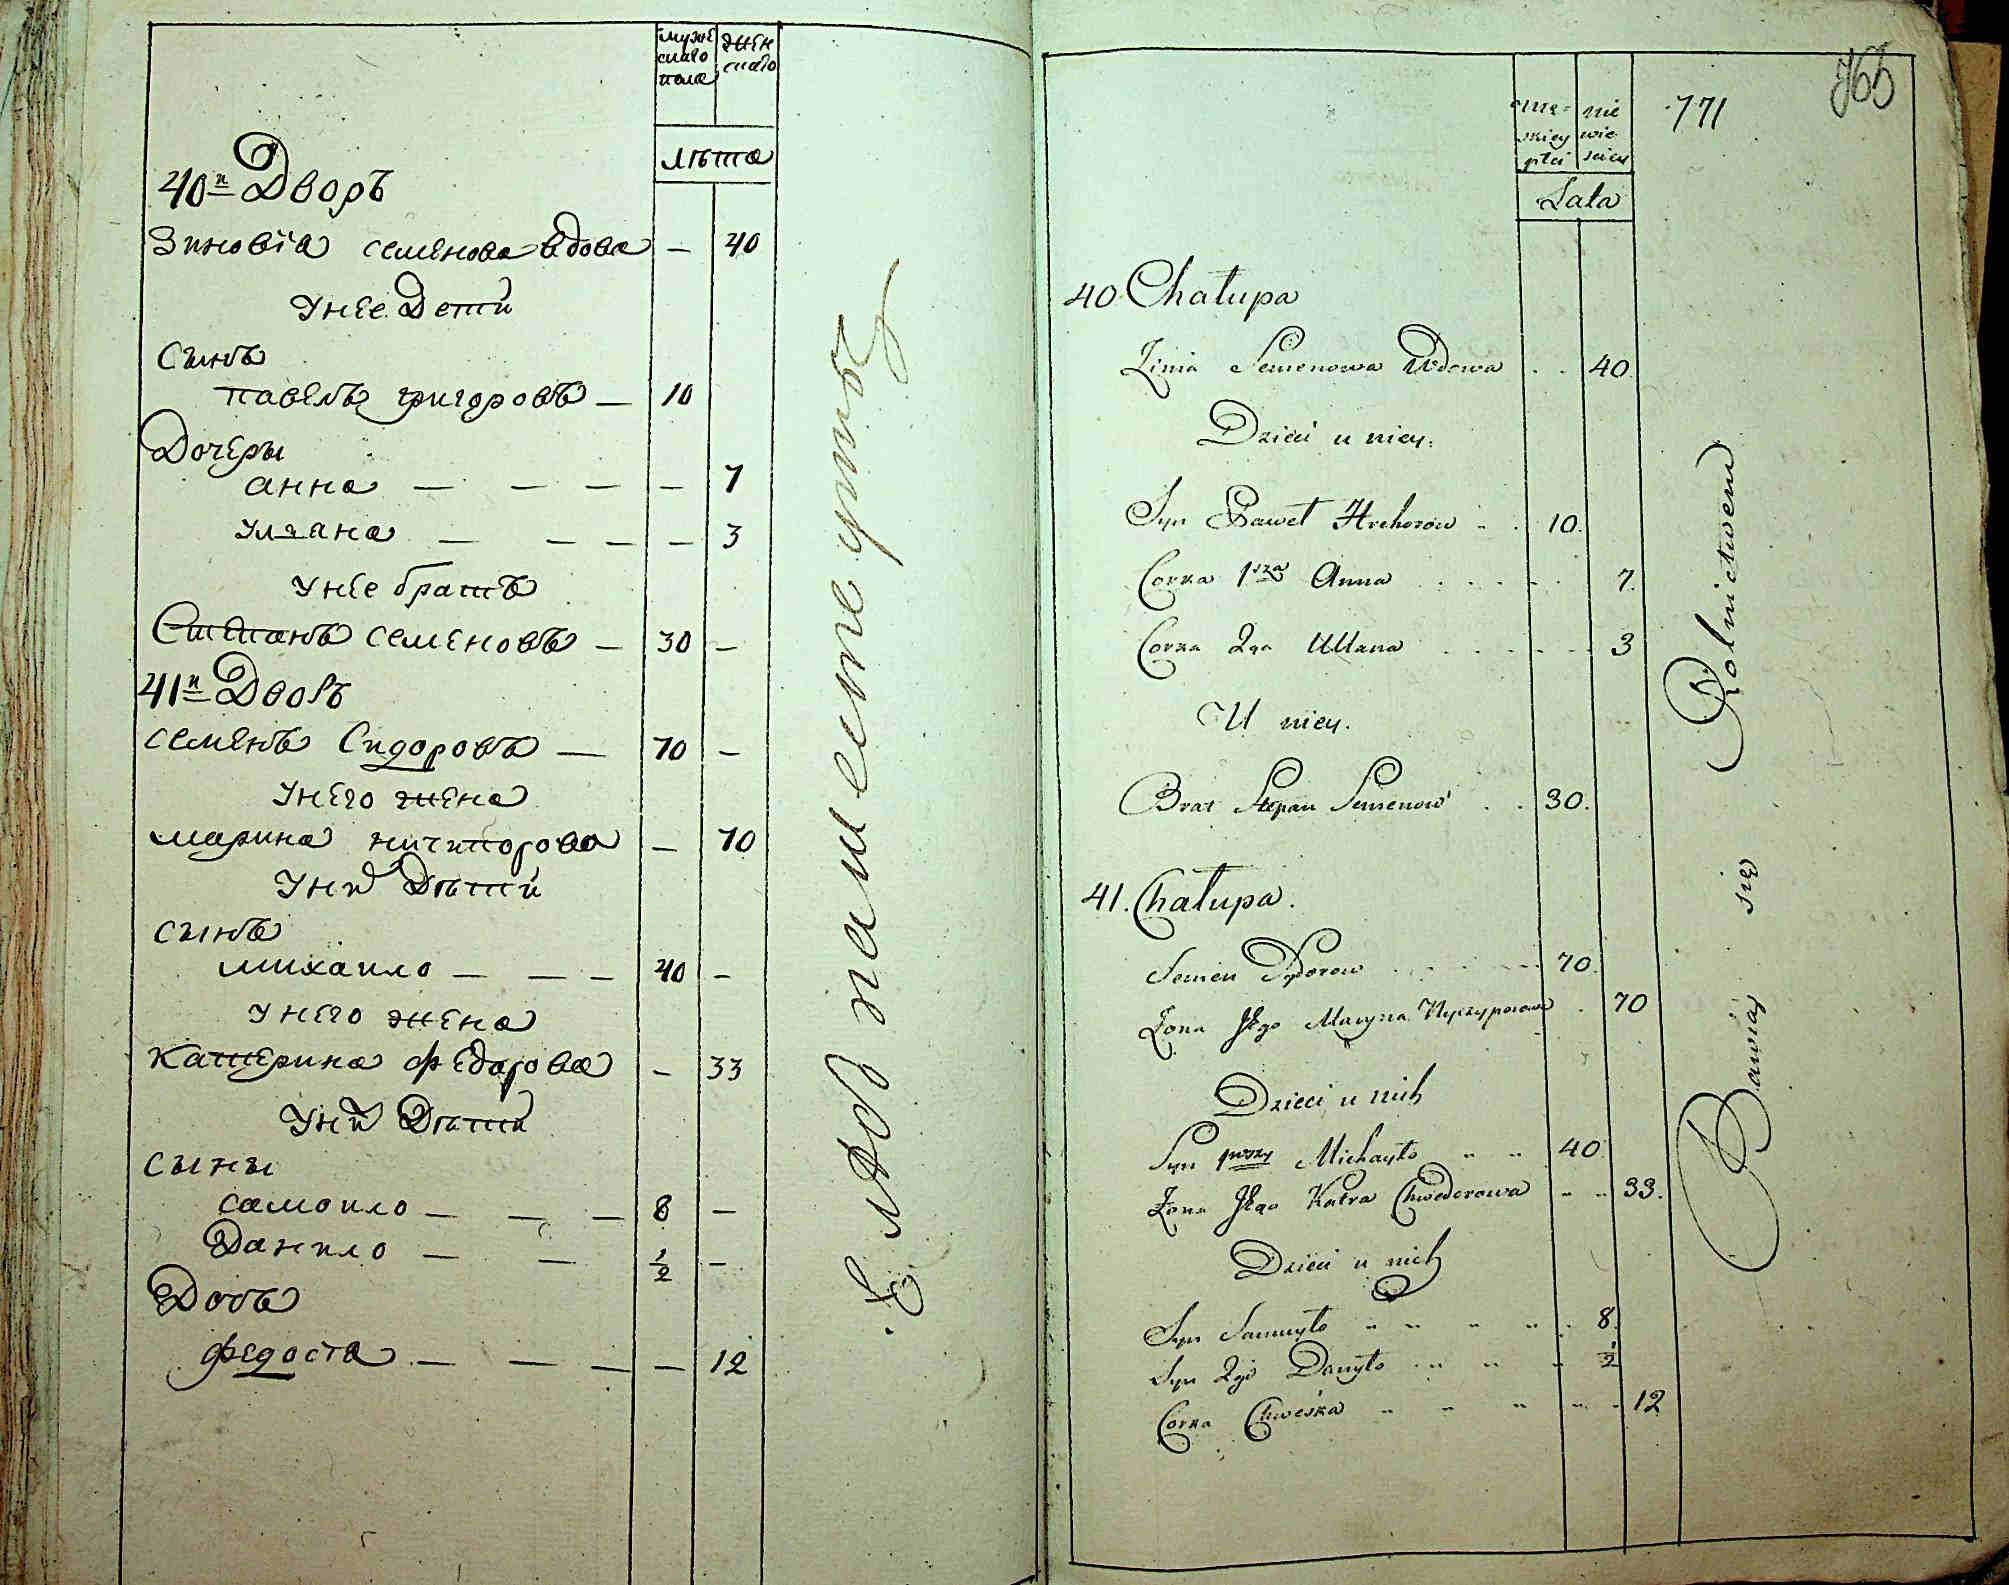 муже
скаго
пола
жен
скаго
лѣта
40й Дворъ
Зиновїа семенова вдова — 40
Унее Дети
Сынъ
павелъ григоровъ — 10
Дочеры
анна — — — — 7
уляна — — — — 3
унее братъ
Степанъ семеновъ — 30 —
41й Дворъ
семенъ Сидоровъ — 70 —
Унего жена
марина ничипорова — 70
Уних Дѣти
сынъ
михаило — — — 40 —
Унего жена
катерина федорова — 33
Уних Дѣти
сыны
самоило — — — 8 —
Данило — — 1/2 —
Дочь
федося — — — — 12
męz-
skiey
płci
nie
wie
sciey
771
Lata
40 Chałupa
Zinia Semenowa Wdowa . . 40
Dzieci u niey.
Syn Paweł Hrehorow . . 10.
Corka 1sza Anna . . . . . 7.
Corka 2ga Ullana . . . . . . 3
U niey.
Brat Stepan Semenow . . 30.
41. Chałupa.
Semen Sydorow . . . . . 70.
Zona Jego Maryna Nyczyporowa . 70
Dzieci u nich
Syn 1wszy Michayło . . 40.
Zona Jego Katra Chwedorowa . . 33.
Dzieci u nich
Syn Samuyło . . . . . 8.
Syn 2gi Danyło . . . 1/2
Corka Chweska . . . . . 12
Bawią się Rolnictwem